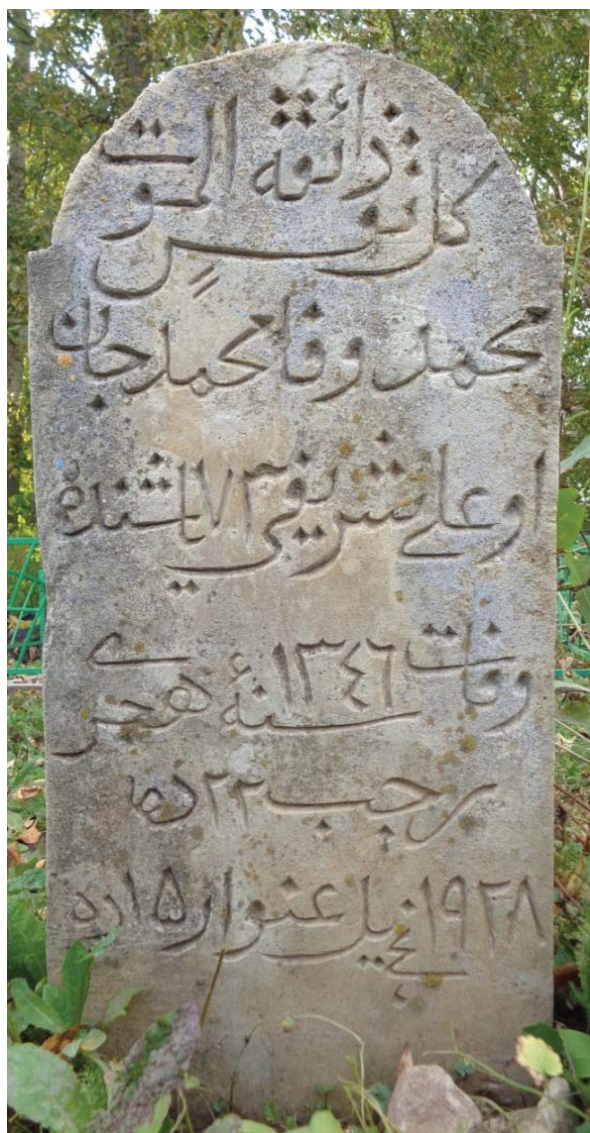 كل نفسٍ ذائقة الموت
محمد وفا محمد جان
اوغلي شريفي ٧٣ ياشنده
وفات ١٣٤٦ سنهٔ هجري
رجب ٢٢ ده
١٩٢٨ نجي يل غنوار ١٥ ده